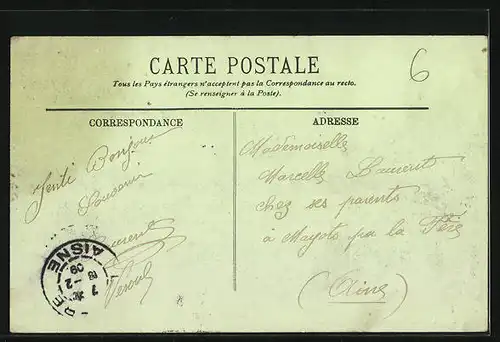 6
CARTE POSTALE
Tous les Pays étrangers n'acceptent pas la Correspondance au recto.
(Se renseigner à la Poste).
CORRESPONDANCE
ADRESSE
Genti Bonjour
Souvenir
Laurent
Mademoiselle
Marcelle Laurent
chez ses parents
à Mayots par la Fère
(Aisne)
AISNE